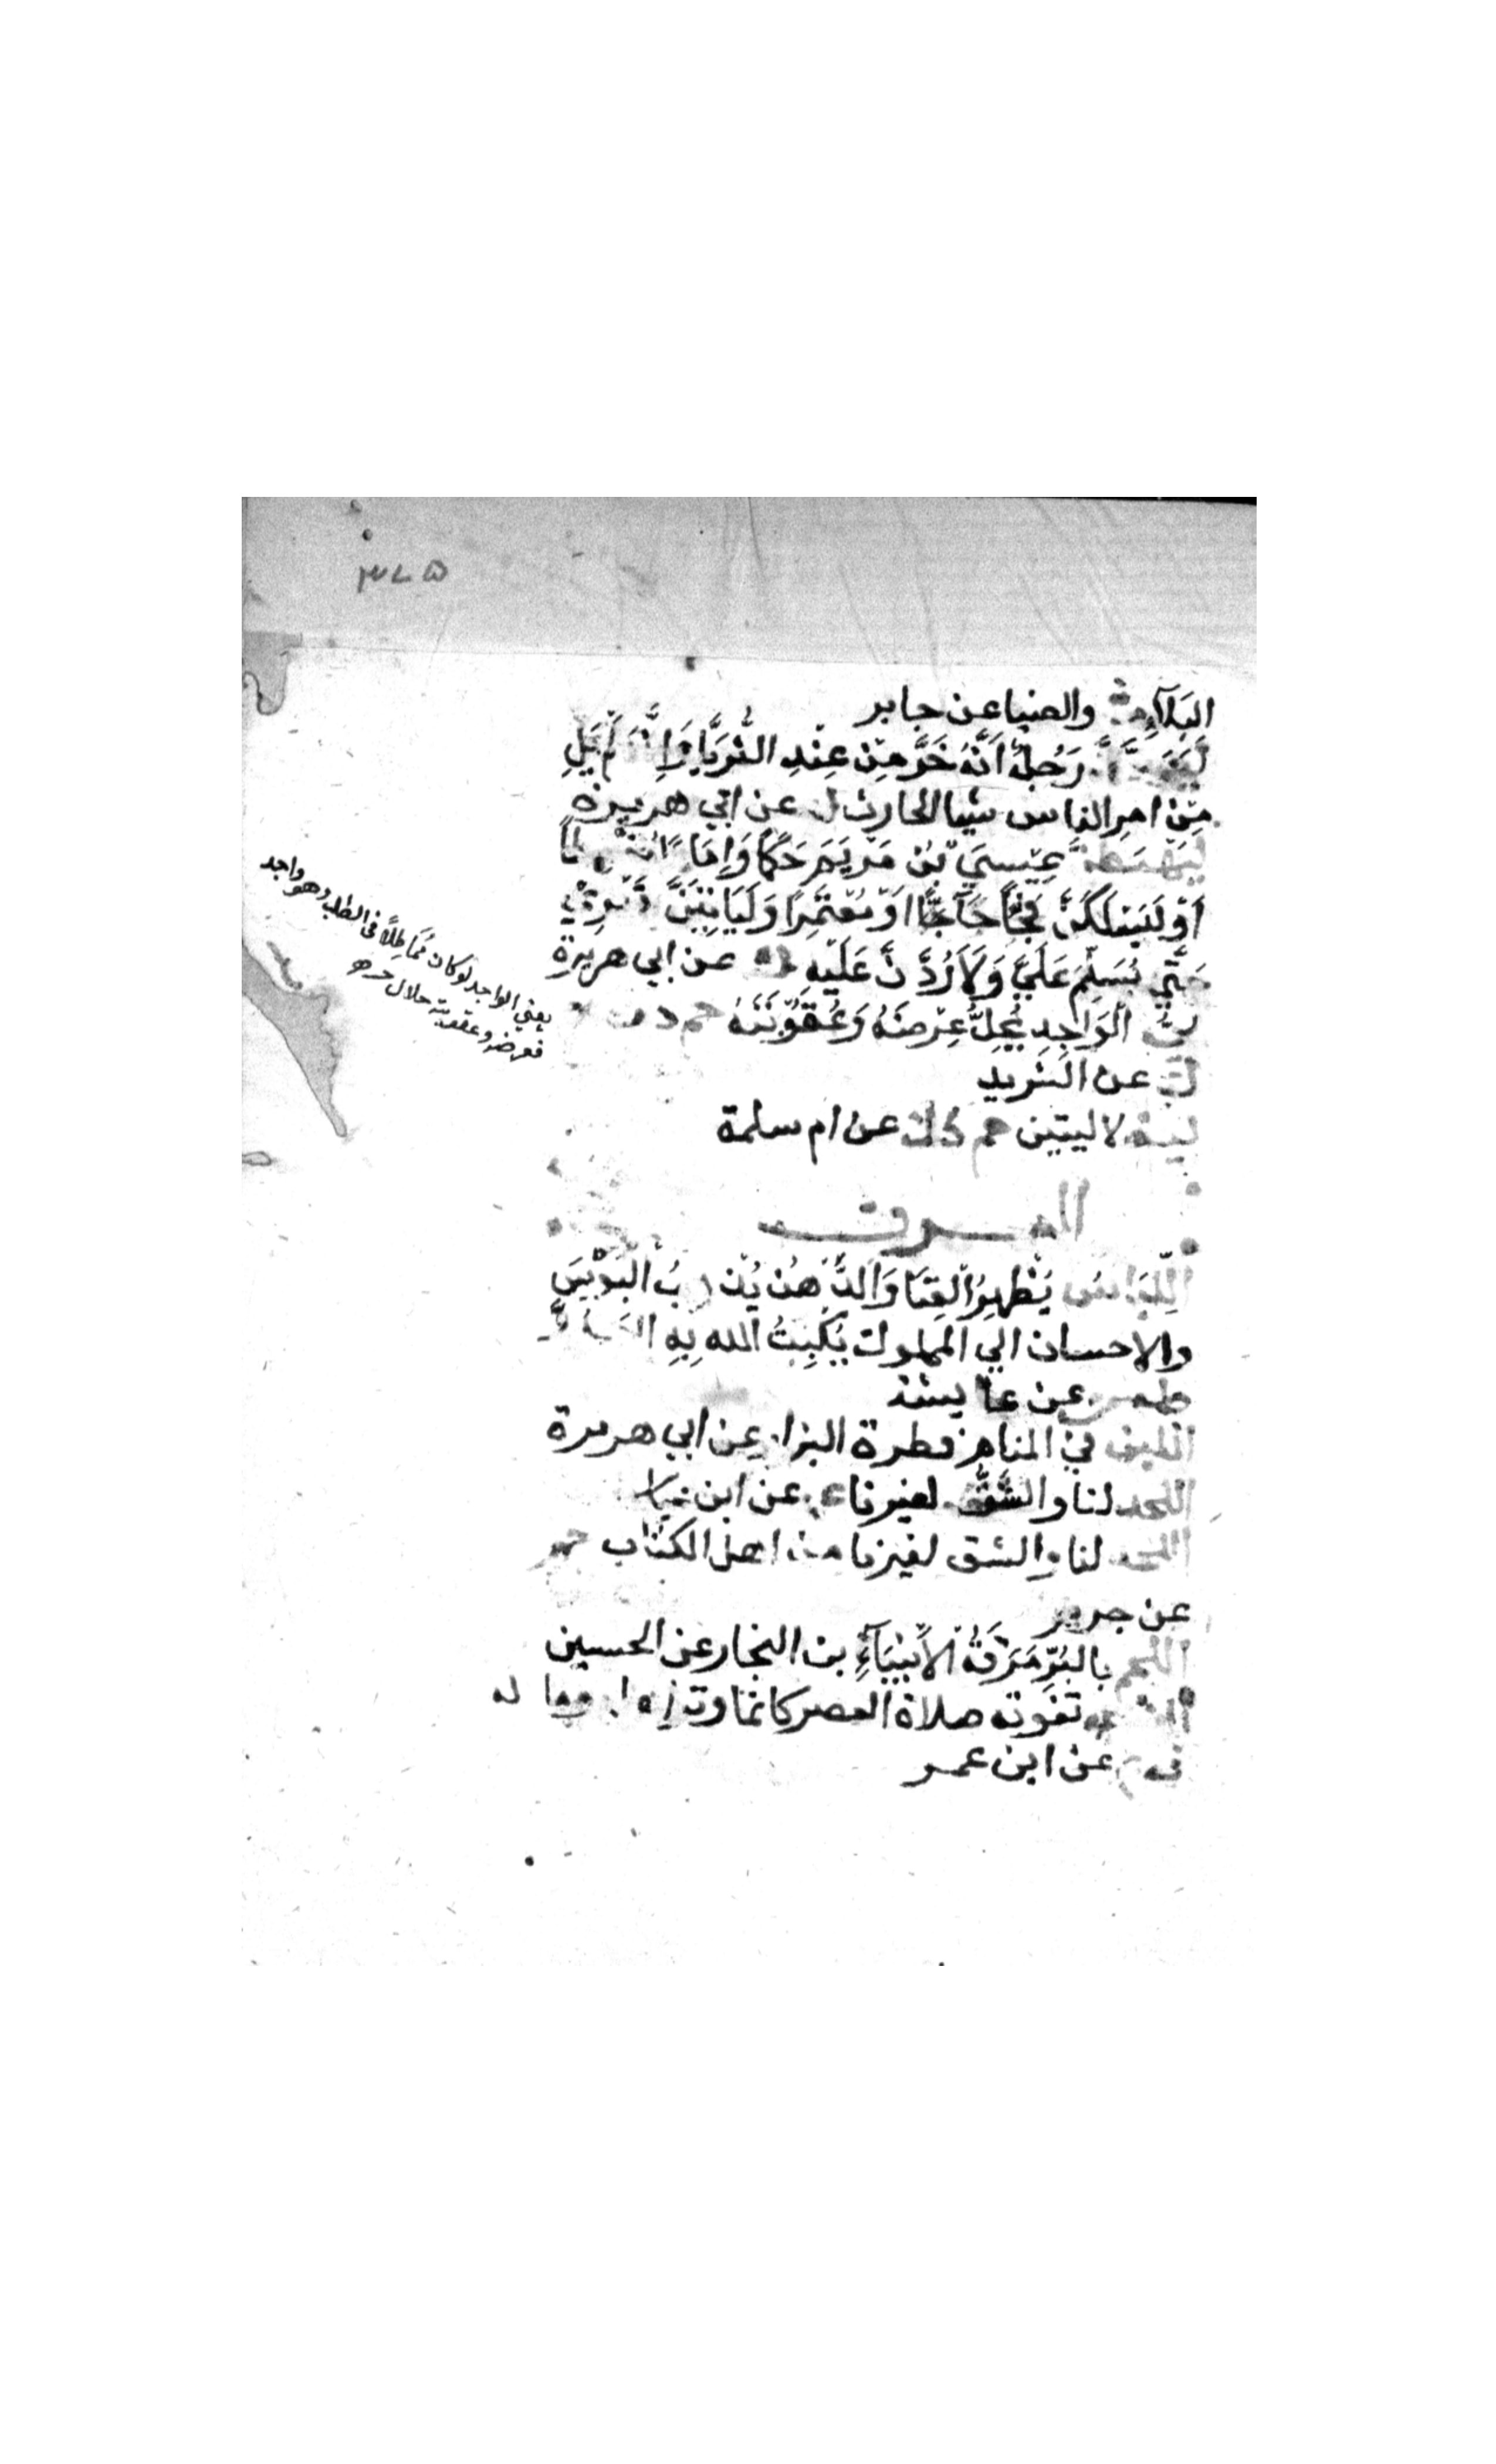 ٣٧٥
البَلَآءِ ت والضيا عن جابر
رَجُلٌ اَنَّهُ خَرَّ مِنْ عِنْدِ الثُّرَيَّا وَاِنَّهُ لَمْ يَلِ
مِنْ امرِ الناس شيا الحارث ك عن ابي هريرة
لَيَهْبِطَنَّ عِيْسَيْ بْنُ مَرْيَمَ حَكَمًا وَاِمَامًا مُقْسِطًا
اَوْ لَيَسْلُكَنَّ فَجًّا حَآجًّا اَوْ مُعْتَمِرًا وَلَيَاتِيَنَّ قَبْرِيْ
حَتَّي يُسَلِّمَ عَلَيَّ وَلَاَرُدَّنَّ عَلَيْهِ ك عن ابي هريرة
ليُّ الْوَاجِدِ يُحِلُّ عِرْضَهُ وَعُقُوْبَتَهُ حم د ن ه
ك عن الشريد
لية لا ليتين حم د ك عن ام سلمة
يعني الواجد لوكان مُمَاطِلًا في الطلب وهو واجد
فعرضه وعقوبته حلال
المعرف
اللِّبَاسُ يُظْهِرُ الْغِنَا وَالدُّهْنُ يُذْهِبُ الْبُوْسَ
والاحسان الي المملوك يُكْبِتُ الله بِهِ العَدُوَّ
طس عن عايشة
اللبن في المنام فطرة البزار عن ابي هريرة
اللحد لنا والشَّقُّ لغيرنا ع عن ابن عباس
اللحد لنا والشق لغيرنا من اهل الكتاب حم
عن جرير
اللحم بالبُرِّ مَرَقَةُ الْاَنْبِيَآءِ بن النجار عن الحسين
الذي تفوته صلاة العصر كانما وتر اهله وماله
ق عن ابن عمر